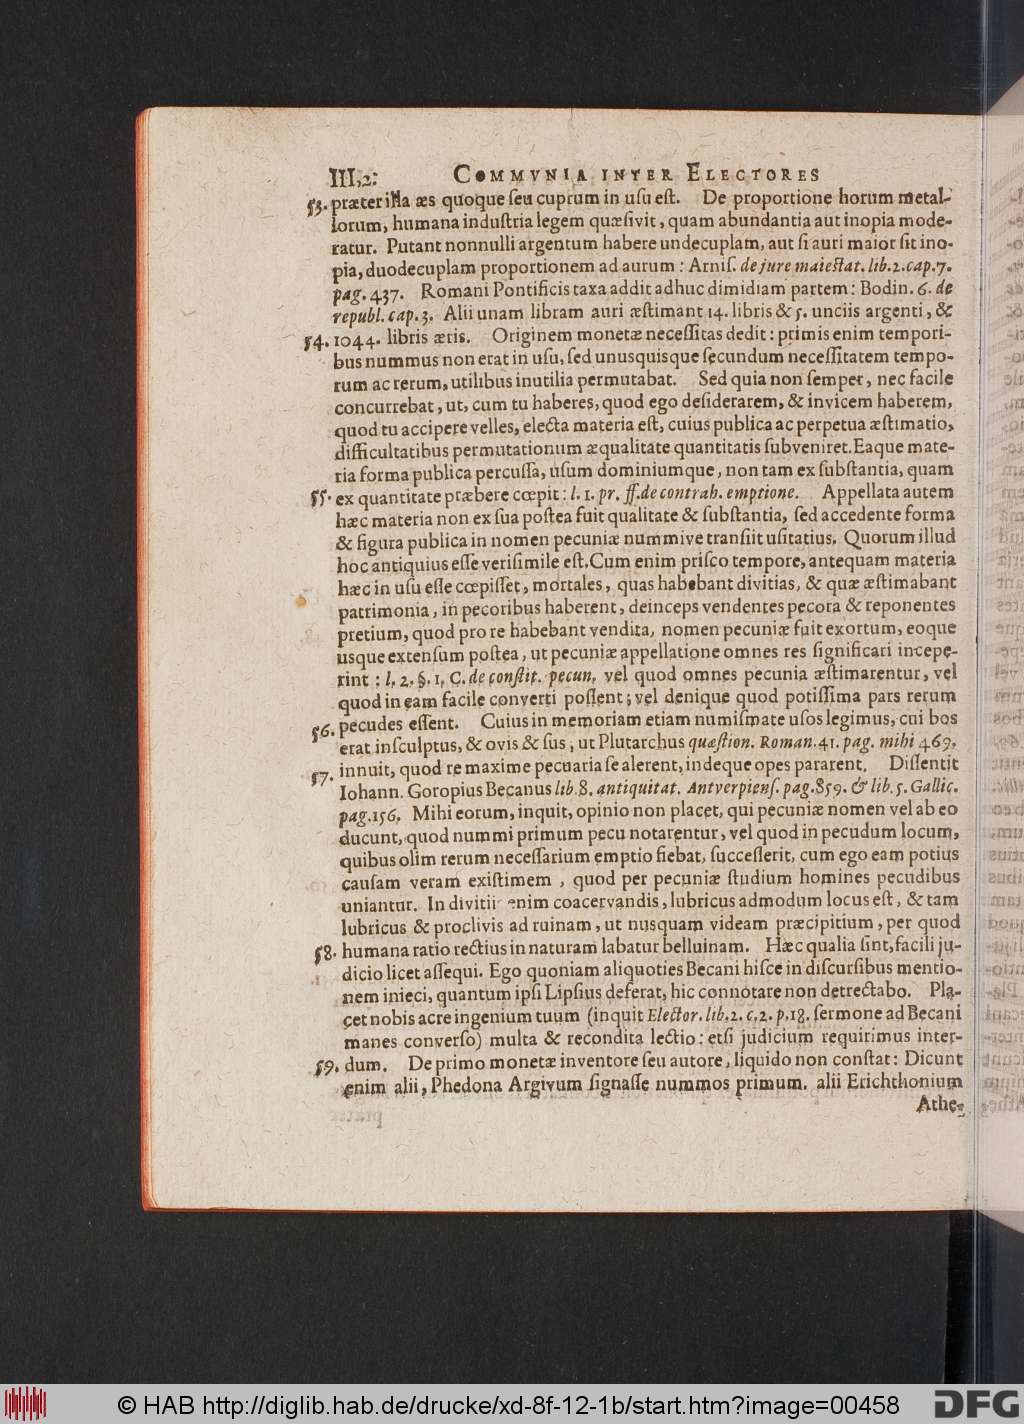 III,2: COMMVNIA INTER ELECTORES
53. præter illa æs quoque ſeu cuprum in uſu eſt. De proportione horum metal-
lorum, humana induſtria legem quæſivit, quam abundantia aut inopia mode-
ratur. Putant nonnulli argentum habere undecuplam, aut ſi auri maior ſit ino-
pia, duodecuplam proportionem ad aurum: Arniſ. de jure maieſtat. lib.2.cap.7.
pag. 437. Romani Pontificis taxa addit adhuc dimidiam partem: Bodin. 6. de
republ. cap. 3. Alii unam libram auri æſtimant 14. libris & 5. unciis argenti, &
54. 1044. libris æris. Originem monetæ neceſſitas dedit: primis enim tempori-
bus nummus non erat in uſu, ſed unusquisque ſecundum neceſſitatem tempo-
rum ac rerum, utilibus inutilia permutabat. Sed quia non ſemper, nec facile
concurrebat, ut, cum tu haberes, quod ego deſiderarem, & invicem haberem,
quod tu accipere velles, electa materia eſt, cuius publica ac perpetua æſtimatio,
difficultatibus permutationum æqualitate quantitatis ſubveniret. Eaque mate-
ria forma publica percuſſa, uſum dominiumque, non tam ex ſubſtantia, quam
55. ex quantitate præbere cœpit: l. 1. pr. ff. de contrah. emptione. Appellata autem
hæc materia non ex ſua poſtea fuit qualitate & ſubſtantia, ſed accedente forma
& figura publica in nomen pecuniæ nummive tranſiit uſitatius. Quorum illud
hoc antiquius eſſe veriſimile eſt. Cum enim priſco tempore, antequam materia
hæc in uſu eſſe cœpiſſet, mortales, quas habebant divitias, & quæ æſtimabant
patrimonia, in pecoribus haberent, deinceps vendentes pecora & reponentes
pretium, quod pro re habebant vendita, nomen pecuniæ fuit exortum, eoque
usque extenſum poſtea, ut pecuniæ appellatione omnes res ſignificari incepe-
rint: l. 2. §. 1. C. de conſtit. pecun. vel quod omnes pecunia æſtimarentur, vel
quod in eam facile converti poſſent; vel denique quod potiſſima pars rerum
56. pecudes eſſent. Cuius in memoriam etiam numiſmate uſos legimus, cui bos
erat inſculptus, & ovis & ſus, ut Plutarchus quæſtion. Roman. 41. pag. mihi 469.
57. innuit, quod re maxime pecuaria ſe alerent, indeque opes pararent. Diſſentit
Iohann. Goropius Becanus lib. 8. antiquitat. Antverpienſ. pag. 859. & lib. 5. Gallic.
pag. 156. Mihi eorum, inquit, opinio non placet, qui pecuniæ nomen vel ab eo
ducunt, quod nummi primum pecu notarentur, vel quod in pecudum locum,
quibus olim rerum neceſſarium emptio fiebat, ſucceſſerit, cum ego eam potius
cauſam veram exiſtimem, quod per pecuniæ ſtudium homines pecudibus
uniantur. In divitiis enim coacervandis, lubricus admodum locus eſt, & tam
lubricus & proclivis ad ruinam, ut nusquam videam præcipitium, per quod
58. humana ratio rectius in naturam labatur belluinam. Hæc qualia ſint, facili ju-
dicio licet aſſequi. Ego quoniam aliquoties Becani hiſce in diſcurſibus mentio-
nem inieci, quantum ipſi Lipſius deferat, hic connotare non detrectabo. Pla-
cet nobis acre ingenium tuum (inquit Elector. lib. 2. c. 2. p. 18. ſermone ad Becani
manes converſo) multa & recondita lectio: etſi judicium requirimus inter-
59. dum. De primo monetæ inventore ſeu autore, liquido non conſtat: Dicunt
enim alii, Phedona Argivum ſignaſſe nummos primum. alii Erichthonium
Athe-
© HAB http://diglib.hab.de/drucke/xd-8f-12-1b/start.htm?image=00458
DFG